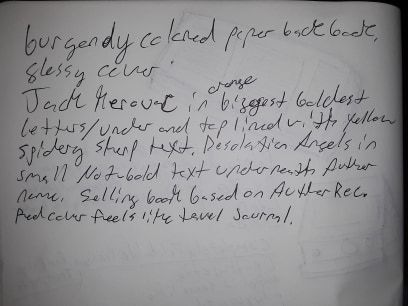 burgendy colored paper back book,
glossy cover.
Jack Kerouac in orange biggest boldest
letters/under and top lined with yellow
spidery sharp text. Desolation Angels in
small Not-bold text underneath Author
name. Selling book based on Author Rec.
Red cover feels like travel Journal.